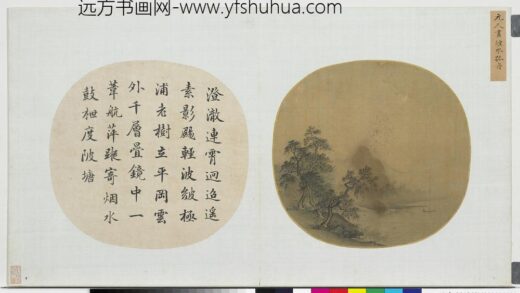 远方书画网-www.yfshuhua.com
元人畫
澄澈連霄迥迢遥
素影颺輕波皴極
浦老樹立平岡雲
外千層疊鏡中一
葦航萍蹤寄烟水
鼓枻度陂塘